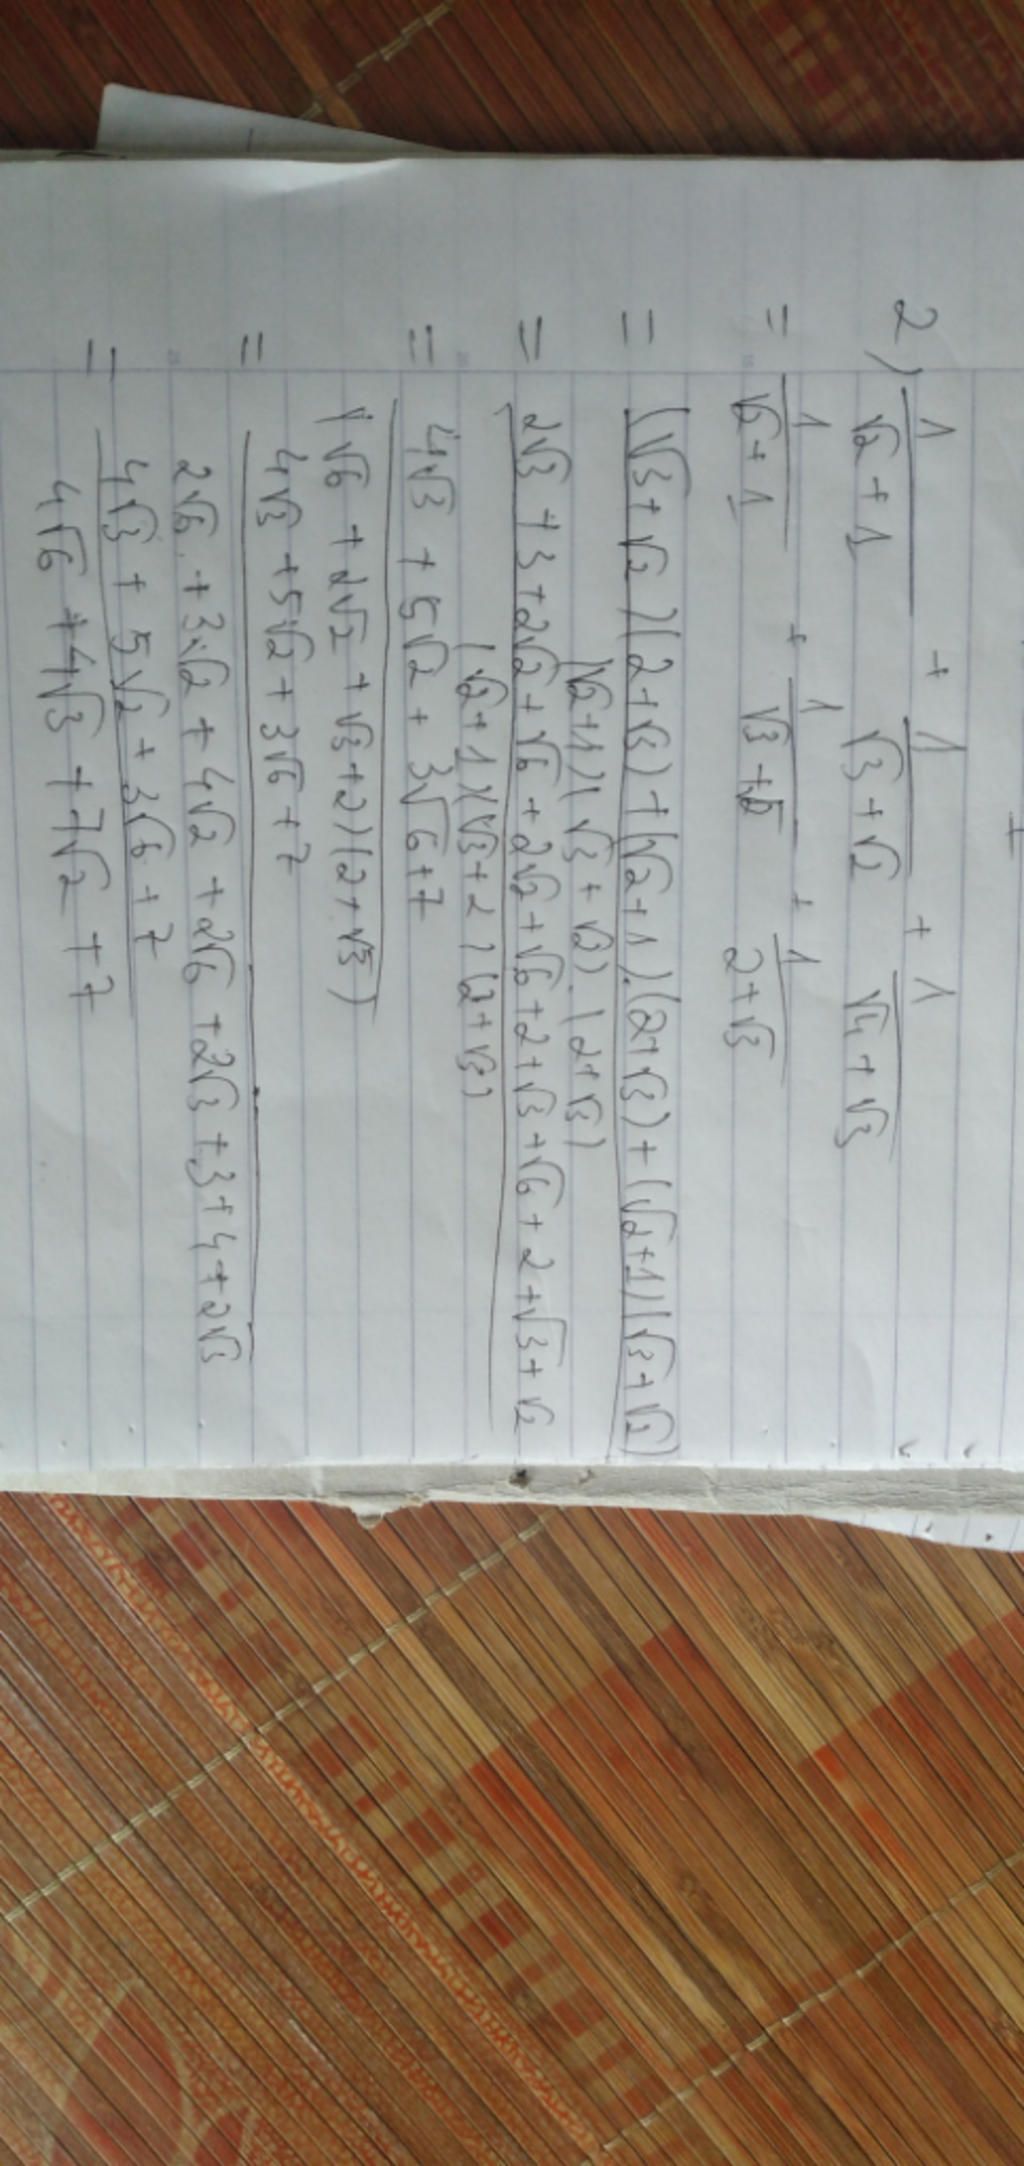 2) 1/(√2 + 1) + 1/(√3 + √2) + 1/(√4 + √3)
= 1/(√2 + 1) + 1/(√3 + √2) + 1/(2 + √3)
= ((√3 + √2)(2 + √3) + (√2 + 1).(2 + √3) + (√2 + 1)(√3 + √2))/((√2 + 1)(√3 + √2).(2 + √3))
= (2√3 + 3 + 2√2 + √6 + 2√2 + √6 + 2 + √3 + √6 + 2 + √3 + √2)/((√2 + 1)(√3 + 2)(2 + √3))
= (4√3 + 5√2 + 3√6 + 7)/((√6 + 2√2 + √3 + 2)(2 + √3))
= (4√3 + 5√2 + 3√6 + 7)/(2√6 + 3√2 + 4√2 + 2√6 + 2√3 + 3 + 4 + 2√3)
= (4√3 + 5√2 + 3√6 + 7)/(4√6 + 4√3 + 7√2 + 7)